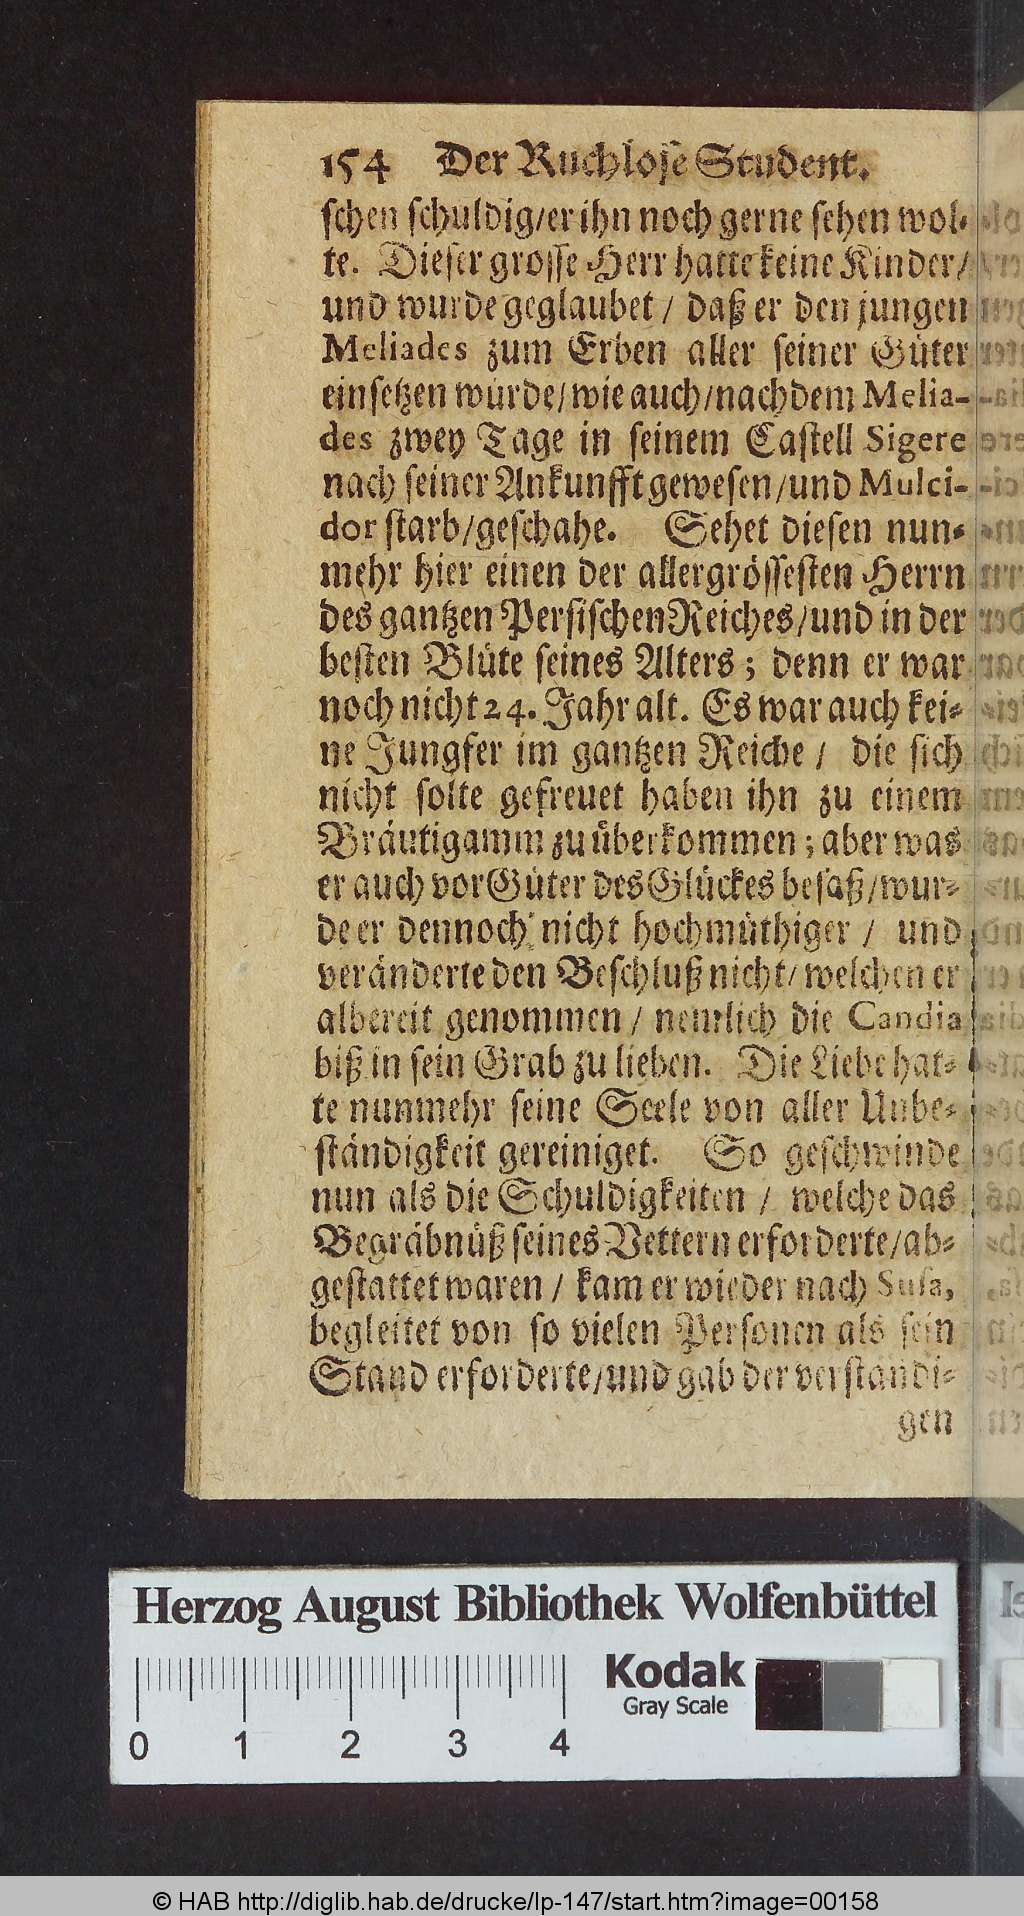 154 Der Ruchlose Student.
schen schuldig/er ihn noch gerne sehen wol-
te. Dieser grosse Herr hatte keine Kinder/
und wurde geglaubet / daß er den jungen
Meliades zum Erben aller seiner Güter
einsetzen würde/wie auch/nachdem Melia-
des zwey Tage in seinem Castell Sigere
nach seiner Ankunfft gewesen/und Mulci-
dor starb/geschahe. Sehet diesen nun-
mehr hier einen der allergrössesten Herrn
des gantzen Persischen Reiches/und in der
besten Blüte seines Alters; denn er war
noch nicht 24. Jahr alt. Es war auch kei-
ne Jungfer im gantzen Reiche / die sich
nicht solte gefreuet haben ihn zu einem
Bräutigamm zu überkommen; aber was
er auch vor Güter des Glückes besaß/wur-
de er dennoch nicht hochmüthiger / und
veränderte den Beschluß nicht/welchen er
albereit genommen / nemlich die Candia
biß in sein Grab zu lieben. Die Liebe hat-
te nunmehr seine Seele von aller Unbe-
ständigkeit gereiniget. So geschwinde
nun als die Schuldigkeiten / welche das
Begräbnüß seines Vettern erforderte/ab-
gestattet waren / kam er wieder nach Susa,
begleitet von so vielen Personen als sein
Stand erforderte/und gab der verständi-
gen
Herzog August Bibliothek Wolfenbüttel
Kodak
Gray Scale
0 1 2 3 4
© HAB http://diglib.hab.de/drucke/lp-147/start.htm?image=00158